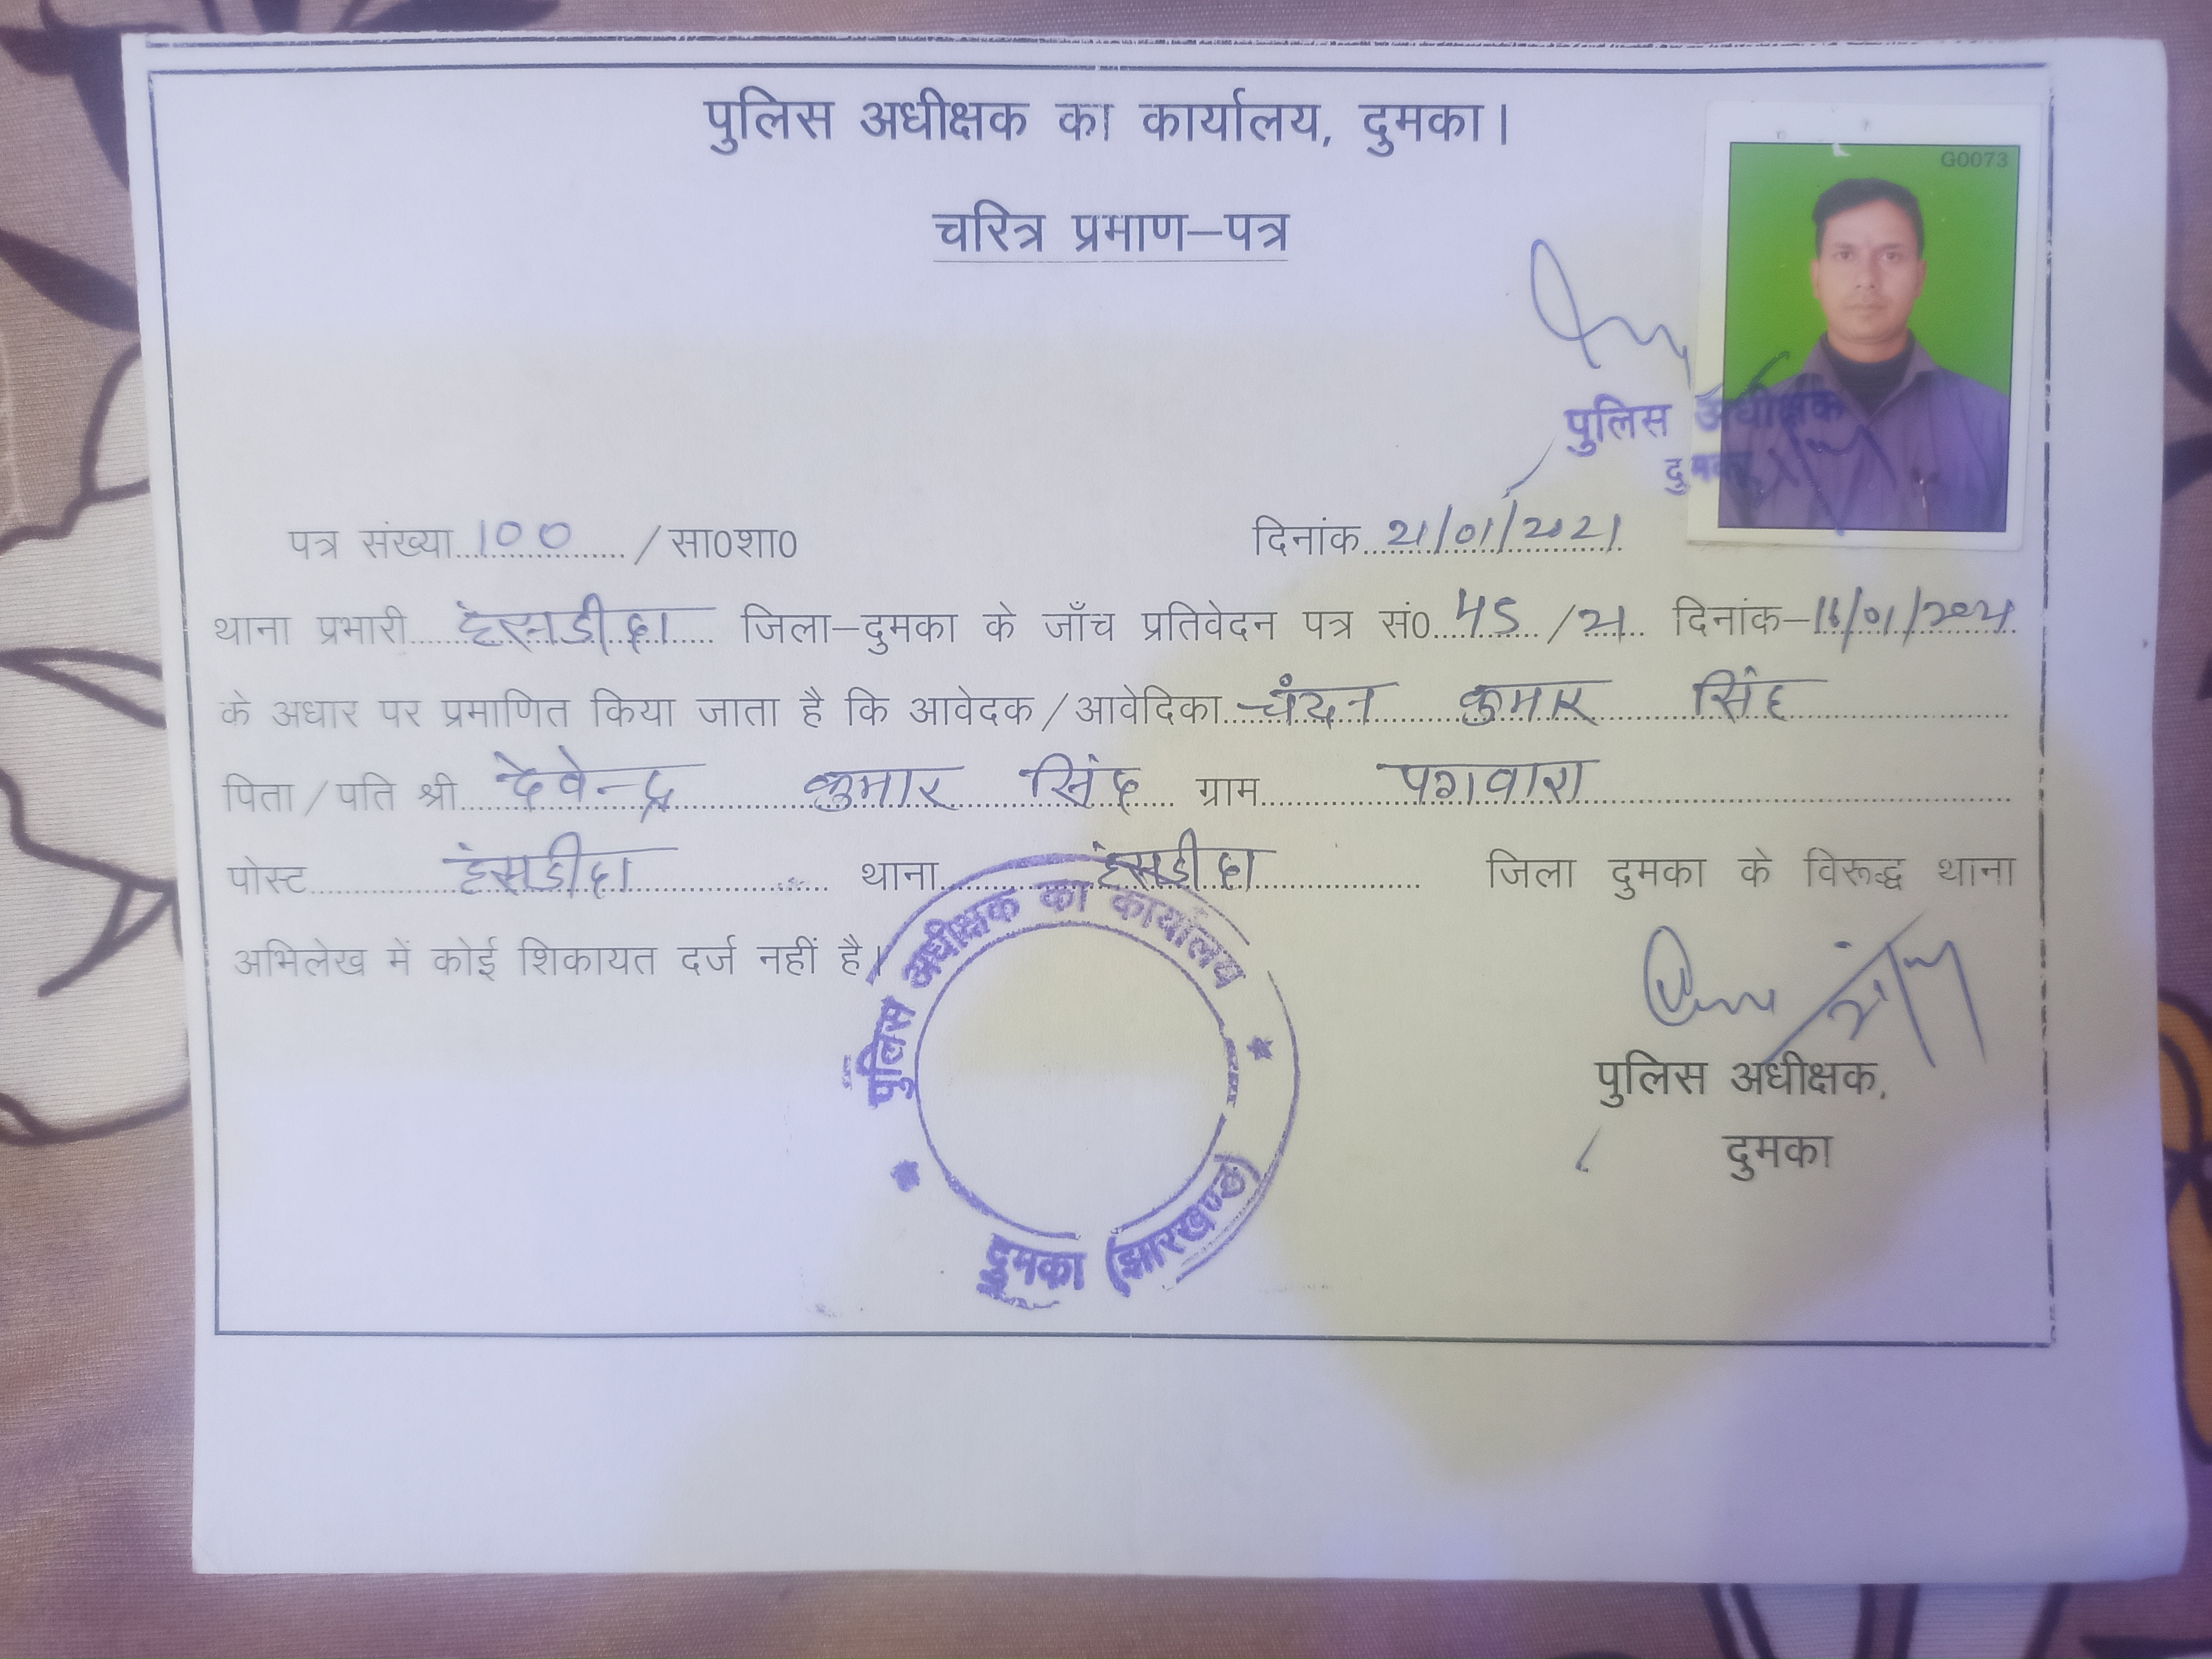 पुलिस अधीक्षक का कार्यालय, दुमका।
चरित्र प्रमाण–पत्र
G0073
पुलिस अधीक्षक
दुमका
पत्र संख्या 100 / सा0शा0 दिनांक 21/01/2021
थाना प्रभारी हंसडीहा जिला–दुमका के जाँच प्रतिवेदन पत्र सं0 45 /21 दिनांक–16/01/2021
के अधार पर प्रमाणित किया जाता है कि आवेदक/आवेदिका चंदन कुमार सिंह
पिता/पति श्री देवेन्द्र कुमार सिंह ग्राम पगवारा
पोस्ट हंसडीहा थाना हंसडीहा जिला दुमका के विरूद्ध थाना
अभिलेख में कोई शिकायत दर्ज नहीं है।
पुलिस अधीक्षक का कार्यालय
दुमका (झारखण्ड)
पुलिस अधीक्षक,
दुमका